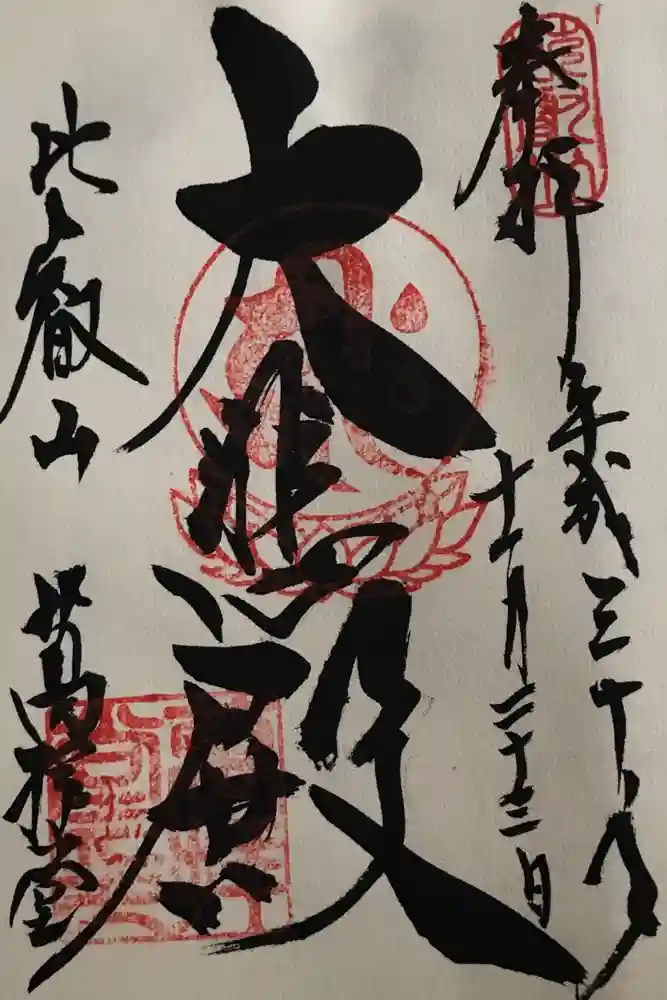 奉拝 平成三十年
十一月二十三日
大悲殿
比叡山 萬拝堂